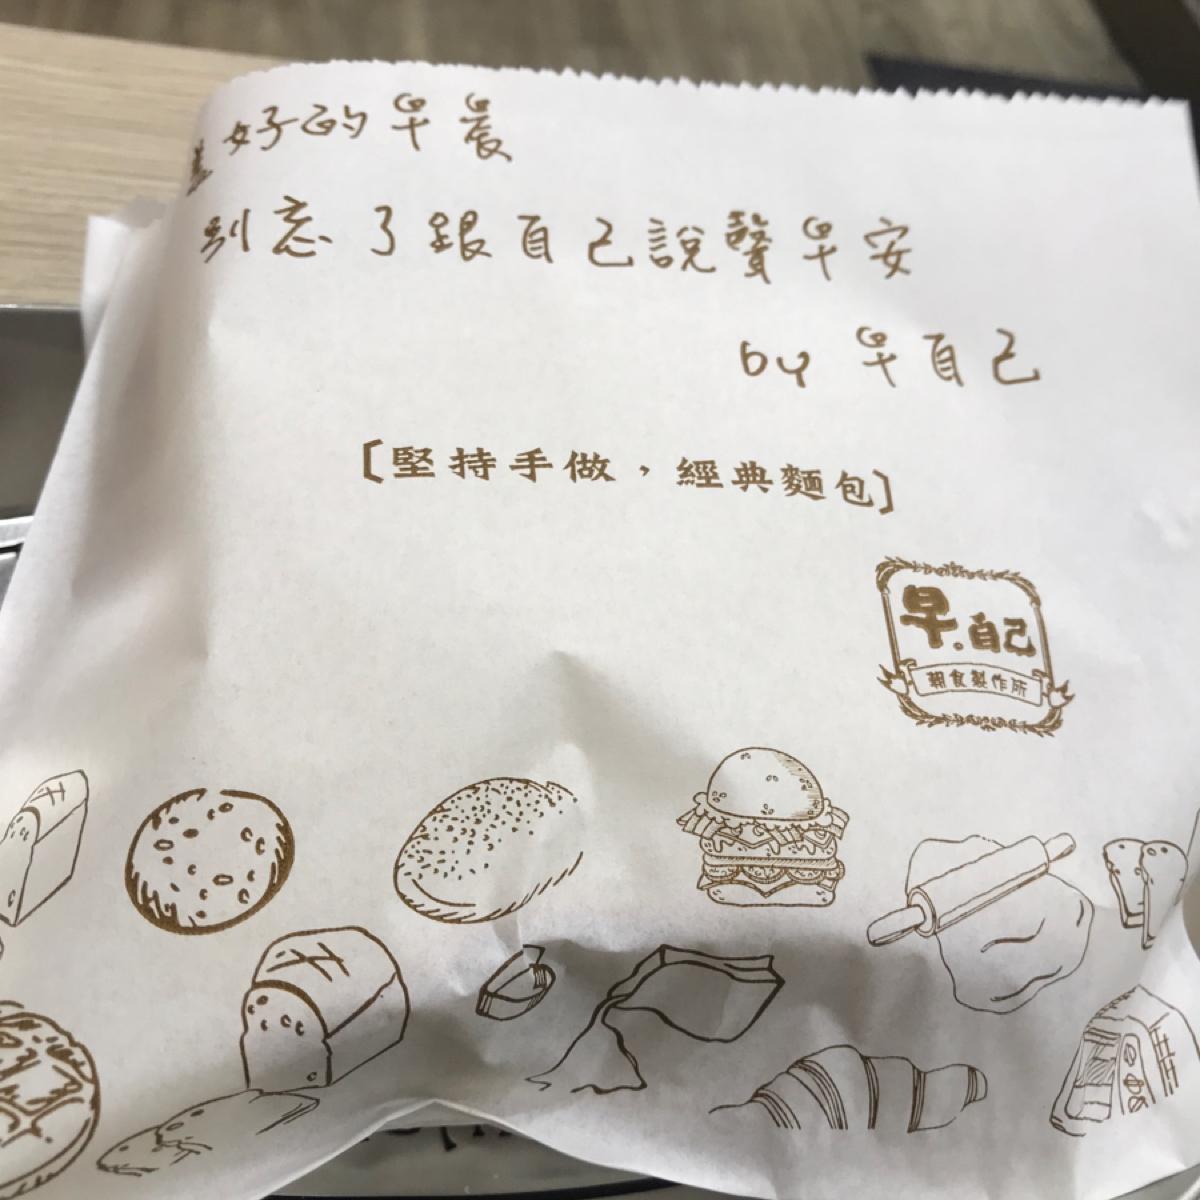 美好的早晨
別忘了跟自己說聲早安
by 早自己
[堅持手做，經典麵包]
早.自己
朝食製作所